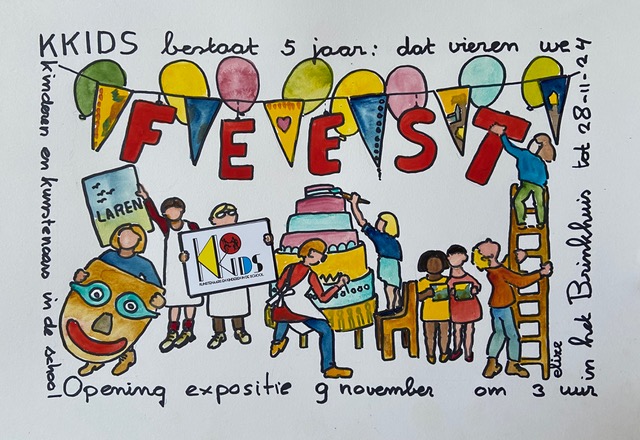 KKIDS bestaat 5 jaar: dat vieren we
tot 28-11-24
in het Brinkhuis
kinderen en kunstenaars in de school
FEEST
LAREN
KKIDS
KUNSTENAARS EN KINDEREN IN DE SCHOOL
elize
Opening expositie 9 november om 3 uur